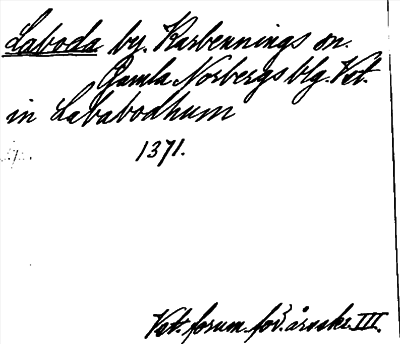 Laboda by. Karbennings sn.
Gamla Norbergs blg. Vst.
in Lababodhum
1371.
Vst. forum. för. årsskr. III.